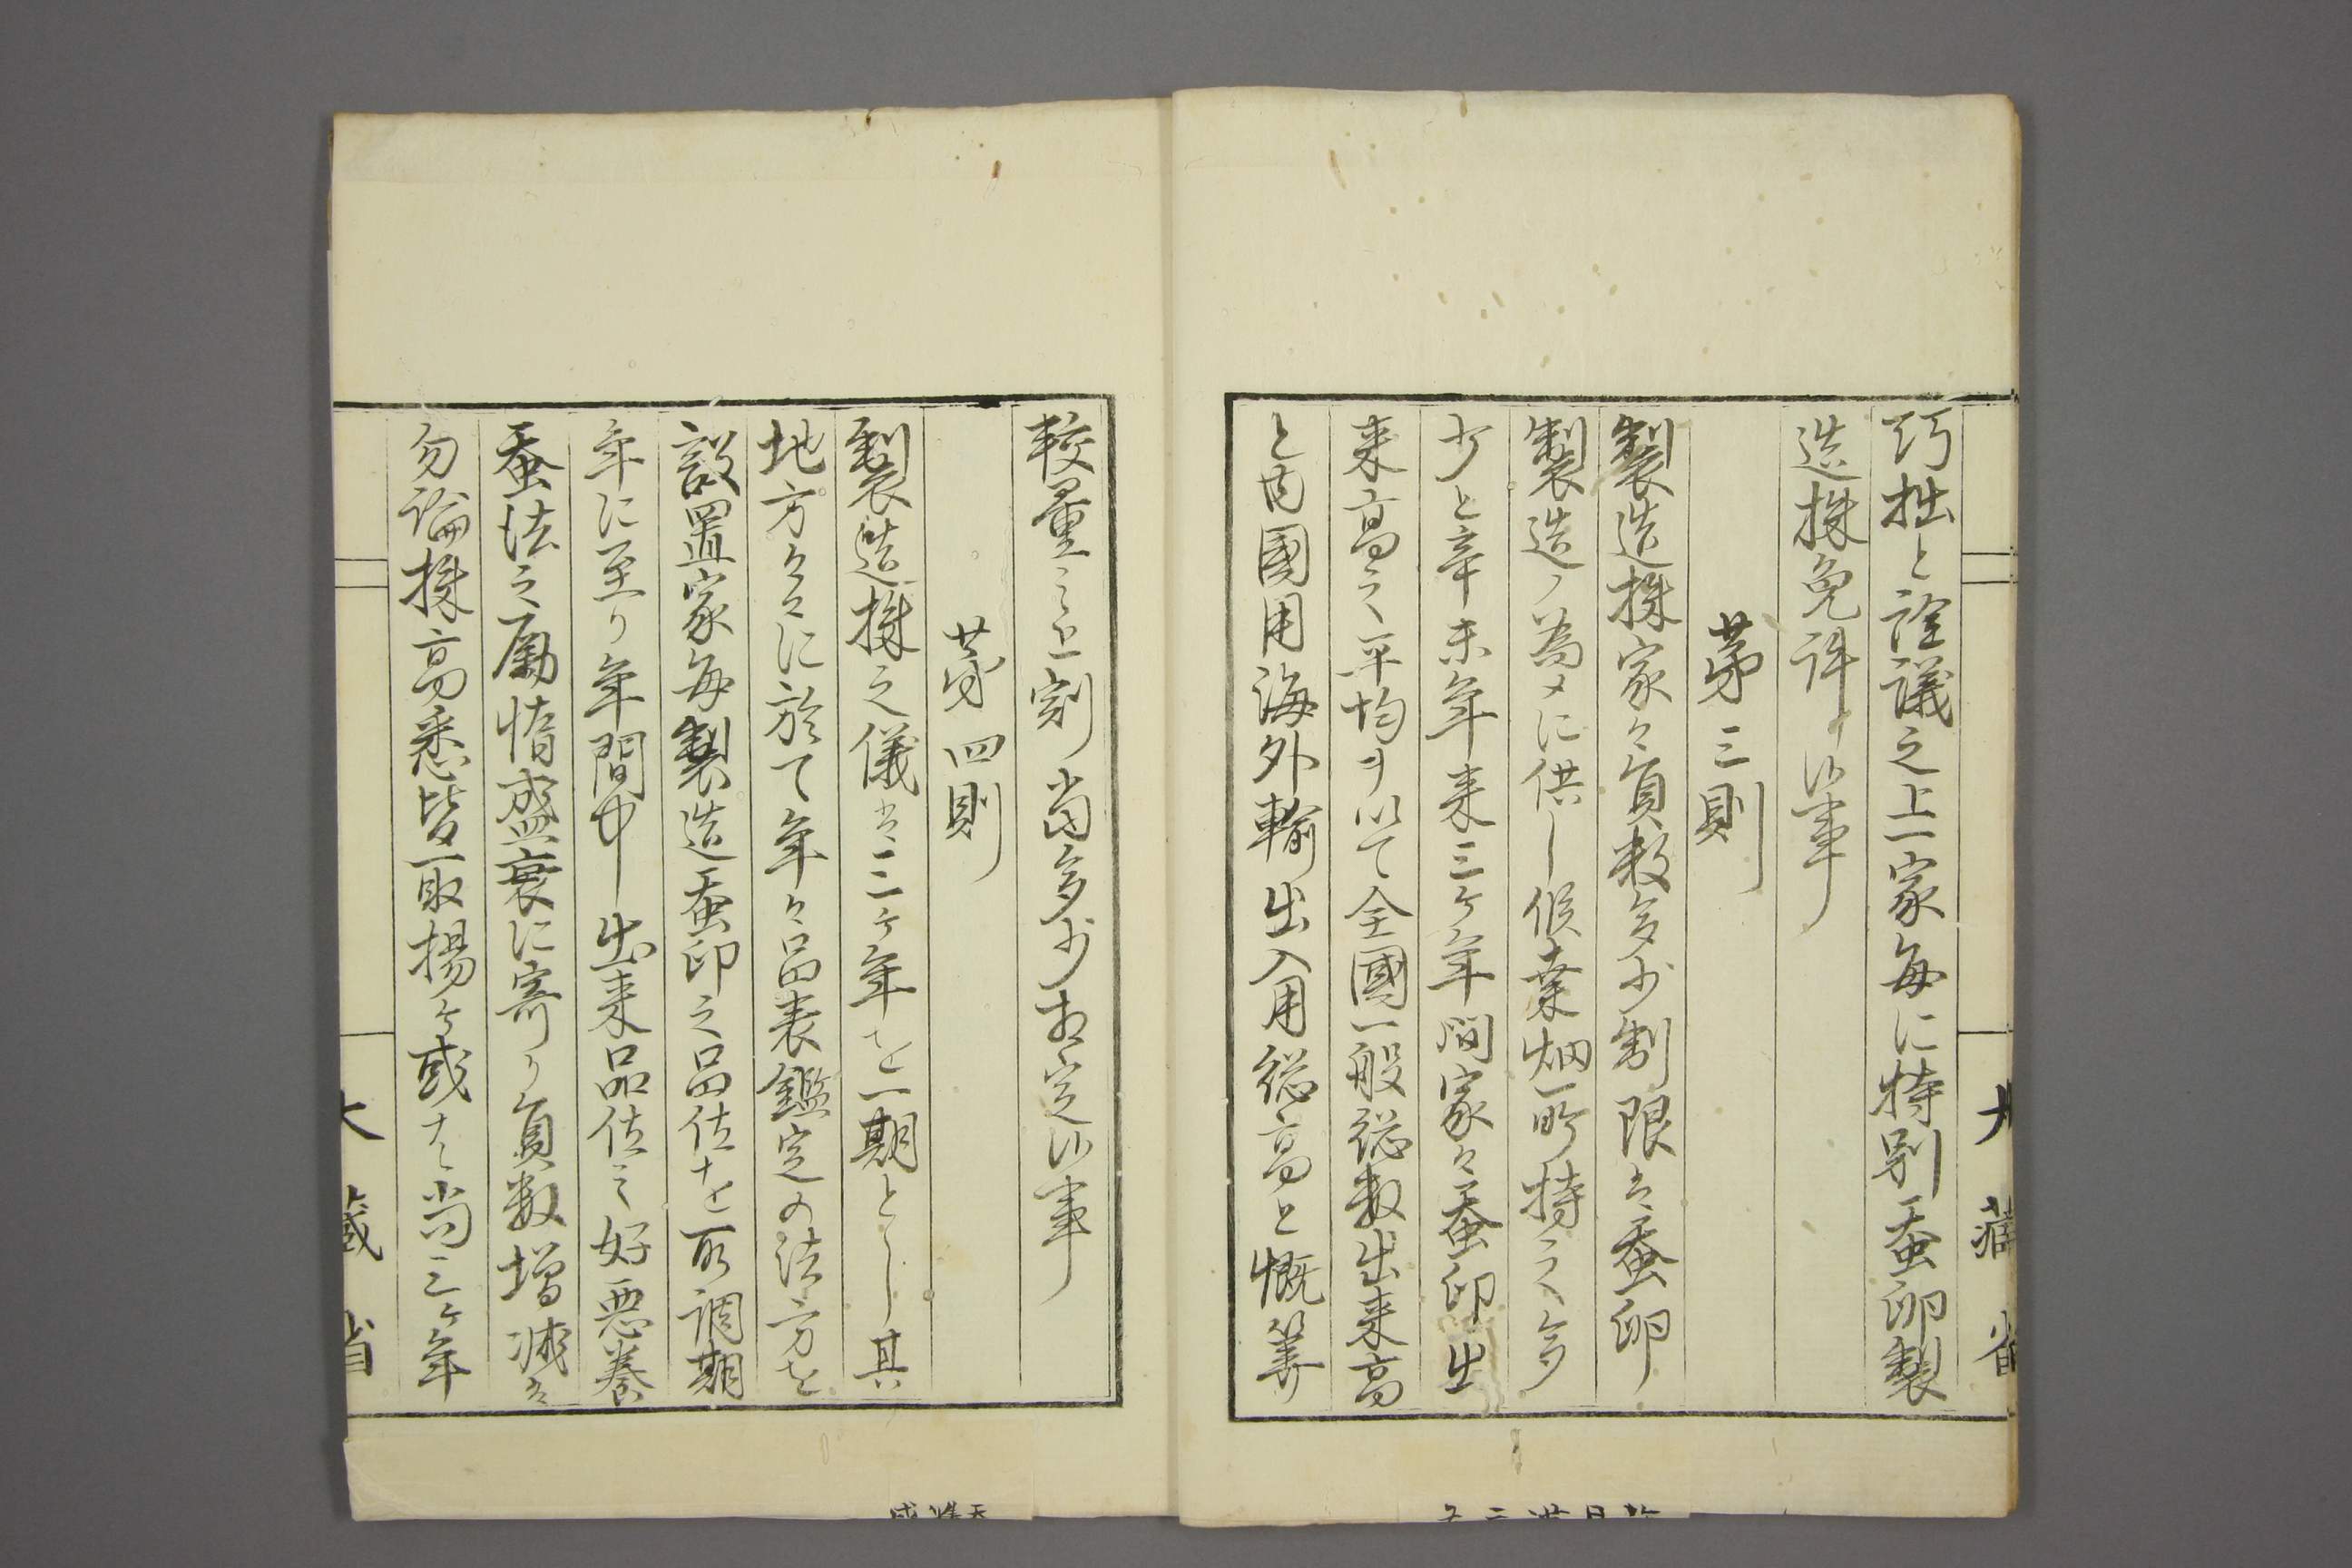 巧拙と詮議之上一家毎に特別蚕卵製
造株免許すへく事
第三則
製造株家々員数多少制限は蚕卵
製造ノ為メに供し候桑畑所持之多
少と辛未年来三ケ年間家々蚕卵出
来高之平均ヲ以て全國一般総数出来高
と内國用海外輸出入用総高と慨筭
較量之上割當多少相定候事
第四則
製造株之儀は三ケ年を一期とし其
地方々々に於て年々品表鑑定の法方を
設置家毎製造蚕卵之品位をも取調期
年に至り年間中出来品位之好悪養
蚕法之勵惰盛衰に寄り員数増減は
勿論株高悉皆取揚ケ或は尚三ケ年
大蔵省
大藏省